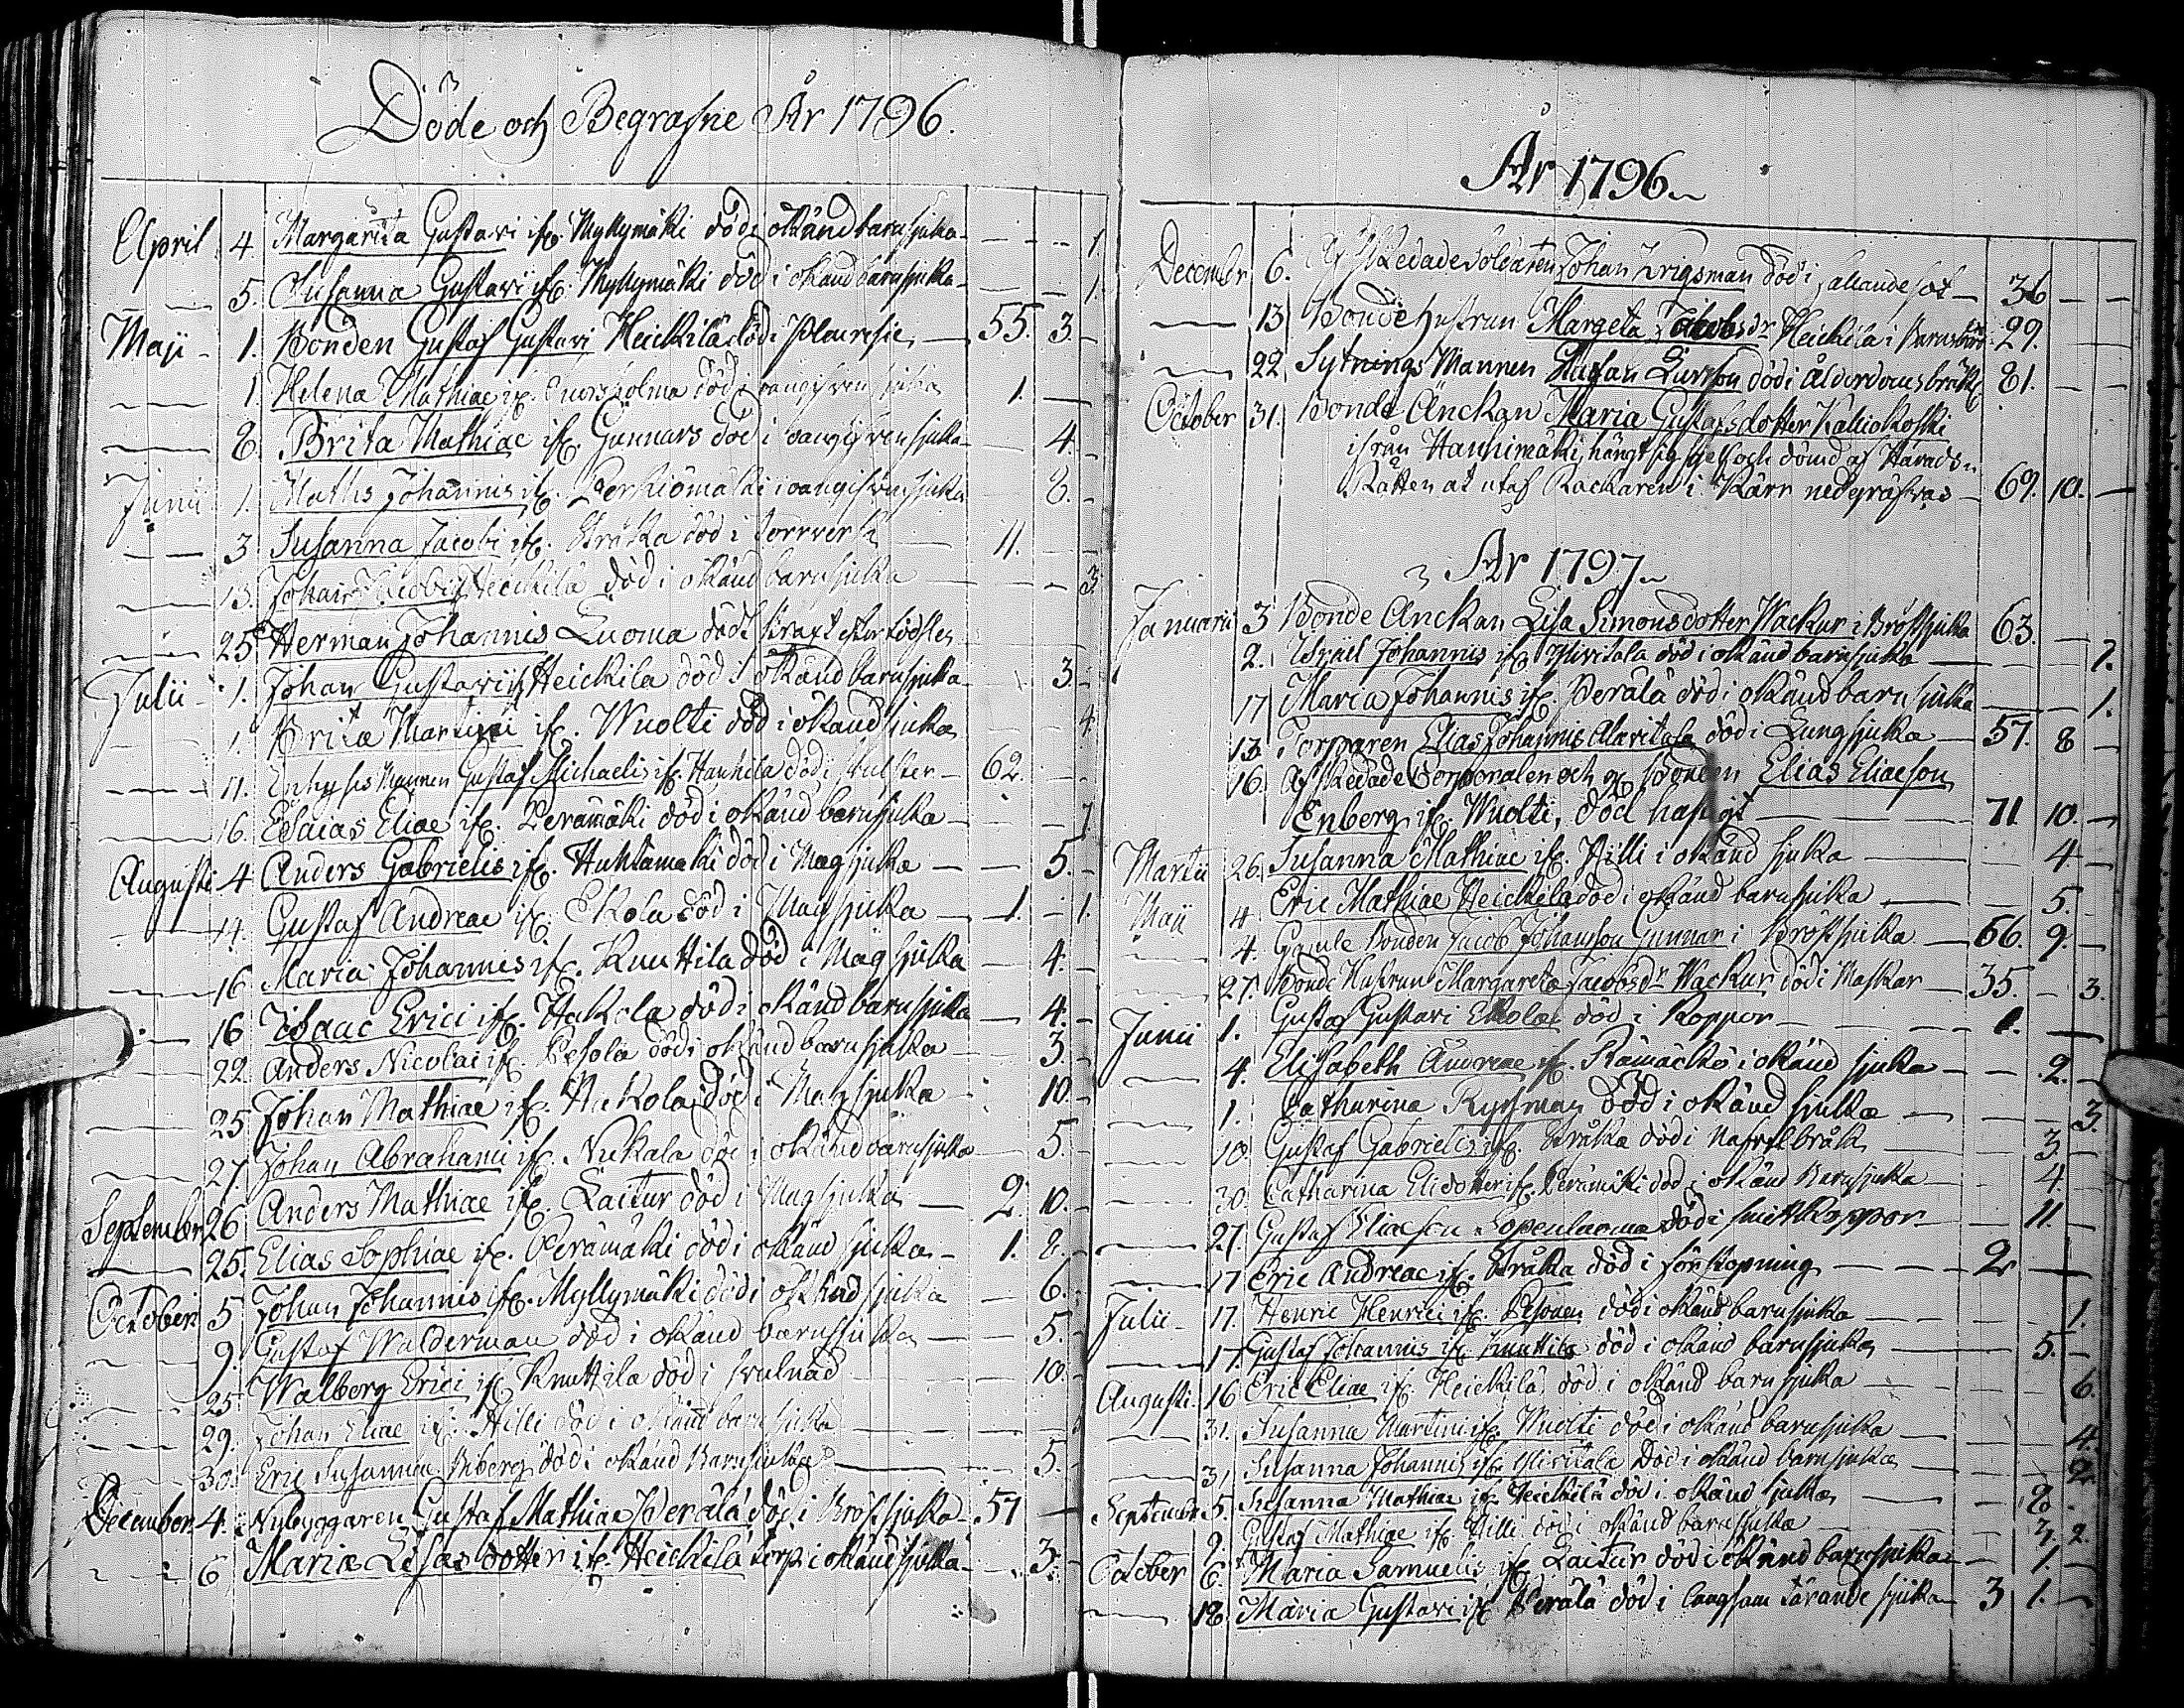 Döde och Begrafne År 1796.
April 4. Margarita Gustavi if. Myllymäki död i okänd barnsjuka - - - 1.
— 5. Susanna Gustavi if. Myllymäki död i okänd barnsjuka - - - 1.
Maji - 1. Bonden Gustaf Gustavi Heickilä död i Pleuresie, — 55. 3. -
— 1. Helena Mathiae if. död i sjuka 1. —
— 8. Brita Mathiae if. Gunnars död i sjuka - 4. -
Junii 1. Maths Johannis if. Perkiömäki i sjuka 8. -
— 3. Susanna Jacobi if. Stråka död i torrverk — 11. - -
— 13. Johan Jacobi if Heickilä död i okänd barnsjuka — - - 3.
— 25 Herman Johannis Luoma död strax efter födslen
Julii - 1. Johan Gustavi if Heickilä död i okänd barnsjuka - 3. -
— 1. Brita Martini if. Wuolti död i okänd sjuka 4.
— 11. Enhyses Mannen Gustaf Michaelis if. Hanhila död i — 62. - -
— 16. Esaias Eliae if. Perämäki död i okänd barnsjuka - - - 7.
Augusti 4 Anders Gabrielis if. Huhtamäki död i Magsjuka — — 5. -
— 14. Gustaf Andreae if. Ekola död i Magsjuka — 1. - 1.
— 16 Maria Johannis if. Knuttila död i Magsjuka — 4. -
— 16 Isaac Erici if. Hakola död i okänd barnsjuka — 4. -
— 22. Anders Nicolai if. Pesola död i okänd barnsjuka — 3. -
— 25 Johan Mathiae if. Hakola död i Magsjuka - 10. -
— 27. Johan Abrahami if. Nukala död i okänd barnsjuka 5. -
September 26 Anders Mathiae if. Laitur död i Magsjuka — 2. 10. -
— 25. Elias Sophiae if. Perämäki död i okänd sjuka - 1. 8. -
October 5 Johan Johannis if. Myllymäki död i okänd sjuka — 6. -
— 9. Gustaf Walderman död i okänd barnsjuka — — 5. -
— 25 Walborg Erici if Knuttila död i svulnad — 10. -
— 29. Johan Eliae if. Hilli död i okänd barnsjuka
— 30. Eric Susannae Enberg död i okänd Barnsjuka — 5. -
December 4. Nybyggaren Gustaf Mathiae Perälä död i Bröstsjuka - 57 —
— 6 Maria Lisas dotter if. Heickilä torp i okänd sjuka - 3. -
År 1796
December 6. Afskedade Soldaten Johan Krigsman död i fallande sot — 36 — —
— 13 Bonde hustrun Margeta Jacobsdr Heickilä i Barnsbörd 29. — —
— 22. Sytnings Mannen Staffan Larsson död i Ålderdomsbråk 81. — —
October 31. Bonde Änckan Maria Gustafsdotter Kalliokoski
ifrån Hanhimäki, hängt sig sjelf och dömd af Härads
Rätten at utaf Rackaren i Kärr nedgräfvas — 69. 10. —
År 1797
Januarii 3 Bonde Änckan Lisa Simonsdotter Wackur i Bröstsjuka 63. —
2. Israel Johannis if Mivitala död i okänd barnsjuka — — 7.
17 Maria Johannis if. Perälä död i okänd barnsjuka — — 1.
13 Torparen Elias Johannis Alaritala död i Lungsjuka — 57. 8 —
16. Afskedade Corporalen och Bonden Elias Eliaeson
Enberg if. Wuolti, död hastigt — 71 10. —
Martii 26. Susanna Mathiae if. Hilli i okänd sjuka — — 4 —
Maji 4. Eric Mathiae Heickilä död i okänd barnsjuka — — 5. -
— 4. Gamle Bonden Jacob Johansson Gunnar i Bröstsjuka — 66. 9. —
— 27. Bonde Hustrun Margareta Jacobsdr Wackur död i Maskar — 35. - 3.
Junii 1. Gustaf Gustavi Ekola död i Koppor — 1. —
— 4. Elisabeth Andreae if. Rämäckö i okänd sjuka — — 2. -
— 1. Catharina Ryssman död i okänd sjuka — — 3.
— 10. Gustaf Gabrielis if. Stråka död i Nafvelbråk — 3 —
— 30. Catharina Elidotter if. Perämäki död i okänd Barnsjuka — 4. —
— 27. Gustaf Eliaeson Sopenluoma död i smittkoppor — 11. —
— 17 Eric Andreae if. Stråka död i förstopning — 2 —
Julii - 17. Henric Henrici if. Pesonen död i okänd barnsjuka — 1.
— 17. Gustaf Johannis if Knuttila död i okänd barnsjuka — 5. -
Augusti. 16 Eric Eliae if. Heickilä död i okänd barnsjuka — 6.
— 31. Susanna Martini if. Wuolti död i okänd barnsjuka — 4.
— 31 Susanna Johannis if. Mivitala död i okänd barnsjuka — 2.
September 5. Susanna Mathiae if. Heickilä död i okänd sjuka — 2.
9. Gustaf Mathiae if. Hilli död i okänd barnsjuka — 3. 2.
October 6. Maria Samuelis if. Laitur död i okänd barnsjuka — 1. -
— 18. Maria Gustavi if Perälä död i långsam tärande sjuka 3 1. —